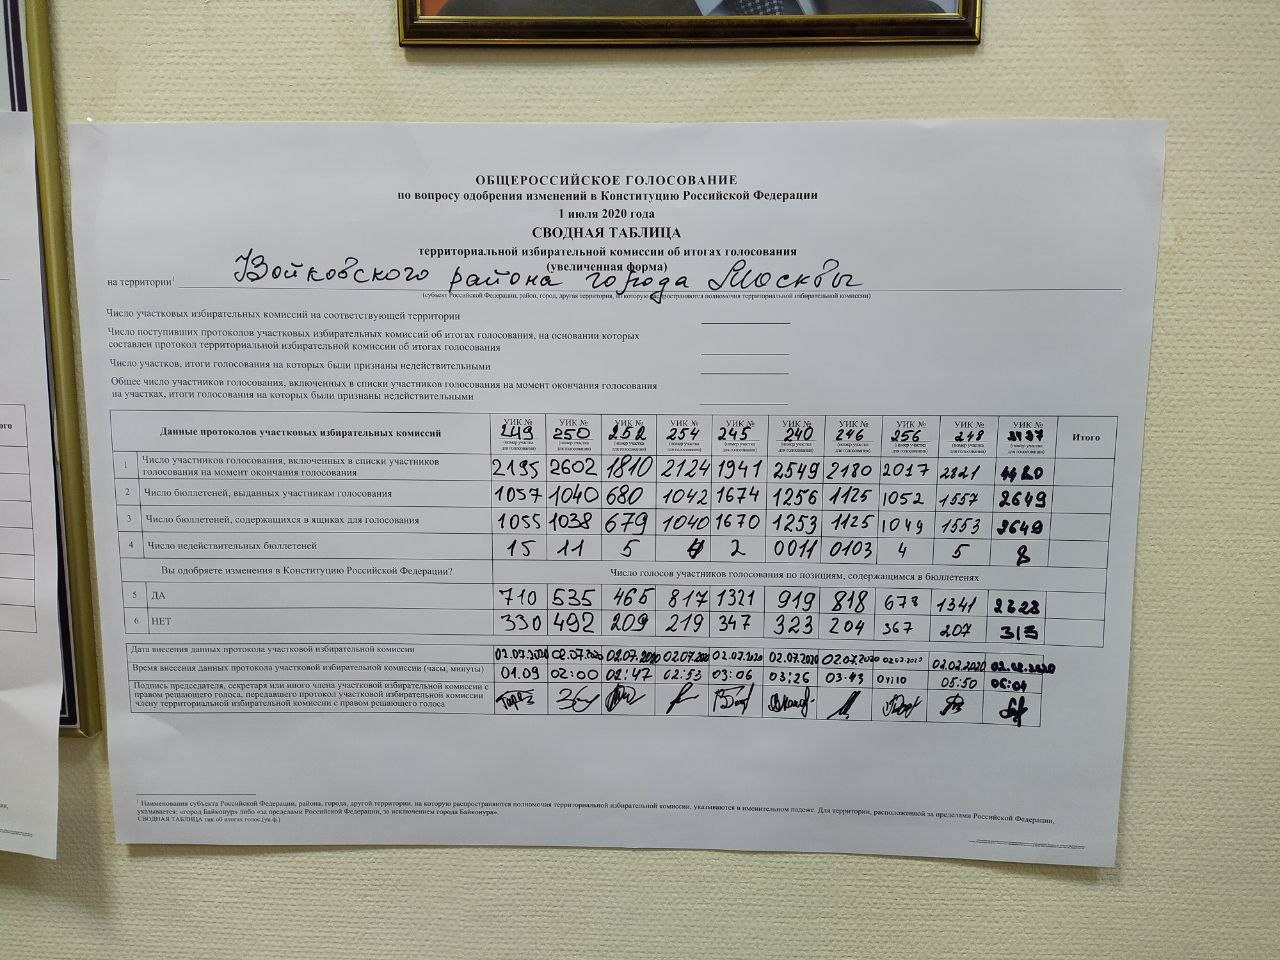 ОБЩЕРОССИЙСКОЕ ГОЛОСОВАНИЕ
по вопросу одобрения изменений в Конституцию Российской Федерации
1 июля 2020 года
СВОДНАЯ ТАБЛИЦА
территориальной избирательной комиссии об итогах голосования
(увеличенная форма)
на территории¹ Войковского района города Москвы
(субъект Российской Федерации, район, город, другая территория, на которую распространяются полномочия территориальной избирательной комиссии)
Число участковых избирательных комиссий на соответствующей территории
Число поступивших протоколов участковых избирательных комиссий об итогах голосования, на основании которых
составлен протокол территориальной избирательной комиссии об итогах голосования
Число участков, итоги голосования на которых были признаны недействительными
Общее число участников голосования, включенных в списки участников голосования на момент окончания голосования
на участках, итоги голосования на которых были признаны недействительными
Данные протоколов участковых избирательных комиссий УИК № 249 УИК № 250 УИК № 252 УИК № 254 УИК № 245 УИК № 240 УИК № 246 УИК № 256 УИК № 248 УИК № Итого
(номер участка для голосования) (номер участка для голосования) (номер участка для голосования) (номер участка для голосования) (номер участка для голосования) (номер участка для голосования) (номер участка для голосования) (номер участка для голосования) (номер участка для голосования) (номер участка для голосования)
1 Число участников голосования, включенных в списки участников
голосования на момент окончания голосования 2195 2602 1810 2124 1941 2549 2180 2017 2821
2 Число бюллетеней, выданных участникам голосования 1057 1040 680 1042 1674 1256 1125 1052 1557 2649
3 Число бюллетеней, содержащихся в ящиках для голосования 1055 1038 679 1040 1670 1253 1125 1049 1553 2649
4 Число недействительных бюллетеней 15 11 5 4 2 0011 0103 4 5 8
Вы одобряете изменения в Конституцию Российской Федерации? Число голосов участников голосования по позициям, содержащимся в бюллетенях
5 ДА 710 535 465 817 1321 919 818 678 1341
6 НЕТ 330 492 209 219 347 323 204 367 207 313
Дата внесения данных протокола участковой избирательной комиссии 02.07.2020 02.07.2020 02.07.2020 02.07.2020 02.07.2020 02.07.2020 02.07.2020 02.07.2020 02.07.2020 02.07.2020
Время внесения данных протокола участковой избирательной комиссии (часы, минуты) 01.09 02:00 02:47 02:53 03:06 03:26 03:43 04:10 05:50 06:04
Подпись председателя, секретаря или иного члена участковой избирательной комиссии с
правом решающего голоса, передавшего протокол участковой избирательной комиссии
члену территориальной избирательной комиссии с правом решающего голоса
¹ Наименования субъекта Российской Федерации, района, города, другой территории, на которую распространяются полномочия территориальной избирательной комиссии, указываются в именительном падеже. Для территории, расположенной за пределами Российской Федерации,
указывается: «город Байконур» либо «за пределами Российской Федерации, за исключением города Байконура».
СВОДНАЯ ТАБЛИЦА тик об итогах голос.(ув.ф.)